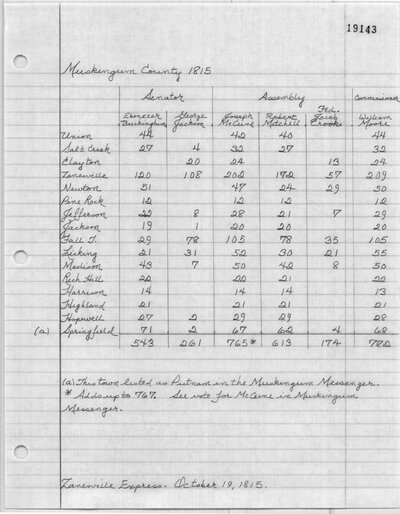 19143
Muskingum County 1815
Senator Assembly Commissioner
Ebenezer Buckingham George Jackson Joseph McCune Robert Mitchell Fed. Jacob Crooks William Moore
Union 44 42 40 44
Salt Creek 27 4 32 27 32
Clayton 20 24 13 24
Zanesville 120 108 202 172 57 209
Newton 51 47 24 29 50
Pine Rock 12 12 12 12
Jefferson 22 8 28 21 7 29
Jackson 19 1 20 20 20
Fall T. 29 78 105 78 35 105
Licking 21 31 52 30 21 55
Madison 43 7 50 42 8 50
Rich Hill 22 22 21 22
Harrison 14 14 14 13
Highland 21 21 21 21
Hopewell 27 2 29 29 28
(a) Springfield 71 2 67 62 4 68
543 261 765* 613 174 782
(a) This town listed as Putnam in the Muskingum Messenger.
* Adds up to 767. See vote for McCune in Muskingum
Messenger.
Zanesville Express. October 19, 1815.